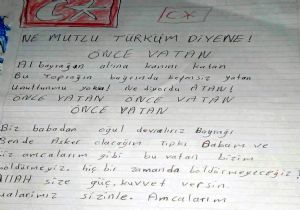 NE MUTLU TÜRKÜM DİYENE!
ÖNCE VATAN
Al bayrağın altına kanını katan
Bu Toprağın bağrında kefensiz yatan
Unuttunmu yoksa! Ne diyordu ATAN!
ÖNCE VATAN ÖNCE VATAN
ÖNCE VATAN
Biz babadan oğul devralırız Bayrağı
Bende Asker olacağım Tıpkı Babam ve
amcalarım gibi bu vatan bizim
böldürmeyiz. hiç bir zamanda böldürmeyeceğiz!
ALLAH size güç, kuvvet versin.
Dualarımız sizinle. Amcalarım